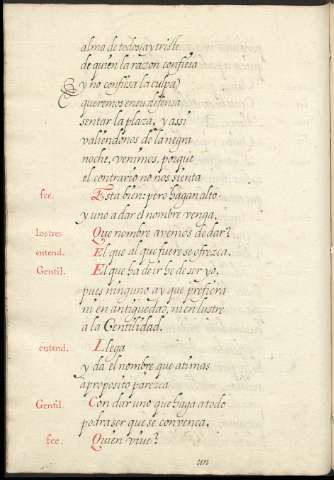 alma de todos, ay triste
de quien la razon confiesa
y no confiesa la culpa)
queremos en su defensa
sentar la plaza, y assi
valiendonos de la negra
noche, venimos, porque
el contrario no nos sienta
fee. Esta bien: pero hagan alto
y uno a dar el nombre venga.
los tres Que nombre avemos de dar?
entend. El que al que fuere se ofrezca.
Gentil. El que ha de ir he de ser yo,
pues ninguno ay que prefiera
ni en antiguedad, ni en lustre
a la Gentilidad.
entend. Llega
y da el nombre que
a proposito parezca
Gentil. Con dar uno que haga a todo
podra ser que se convenca.
fee. Quien vive?
un